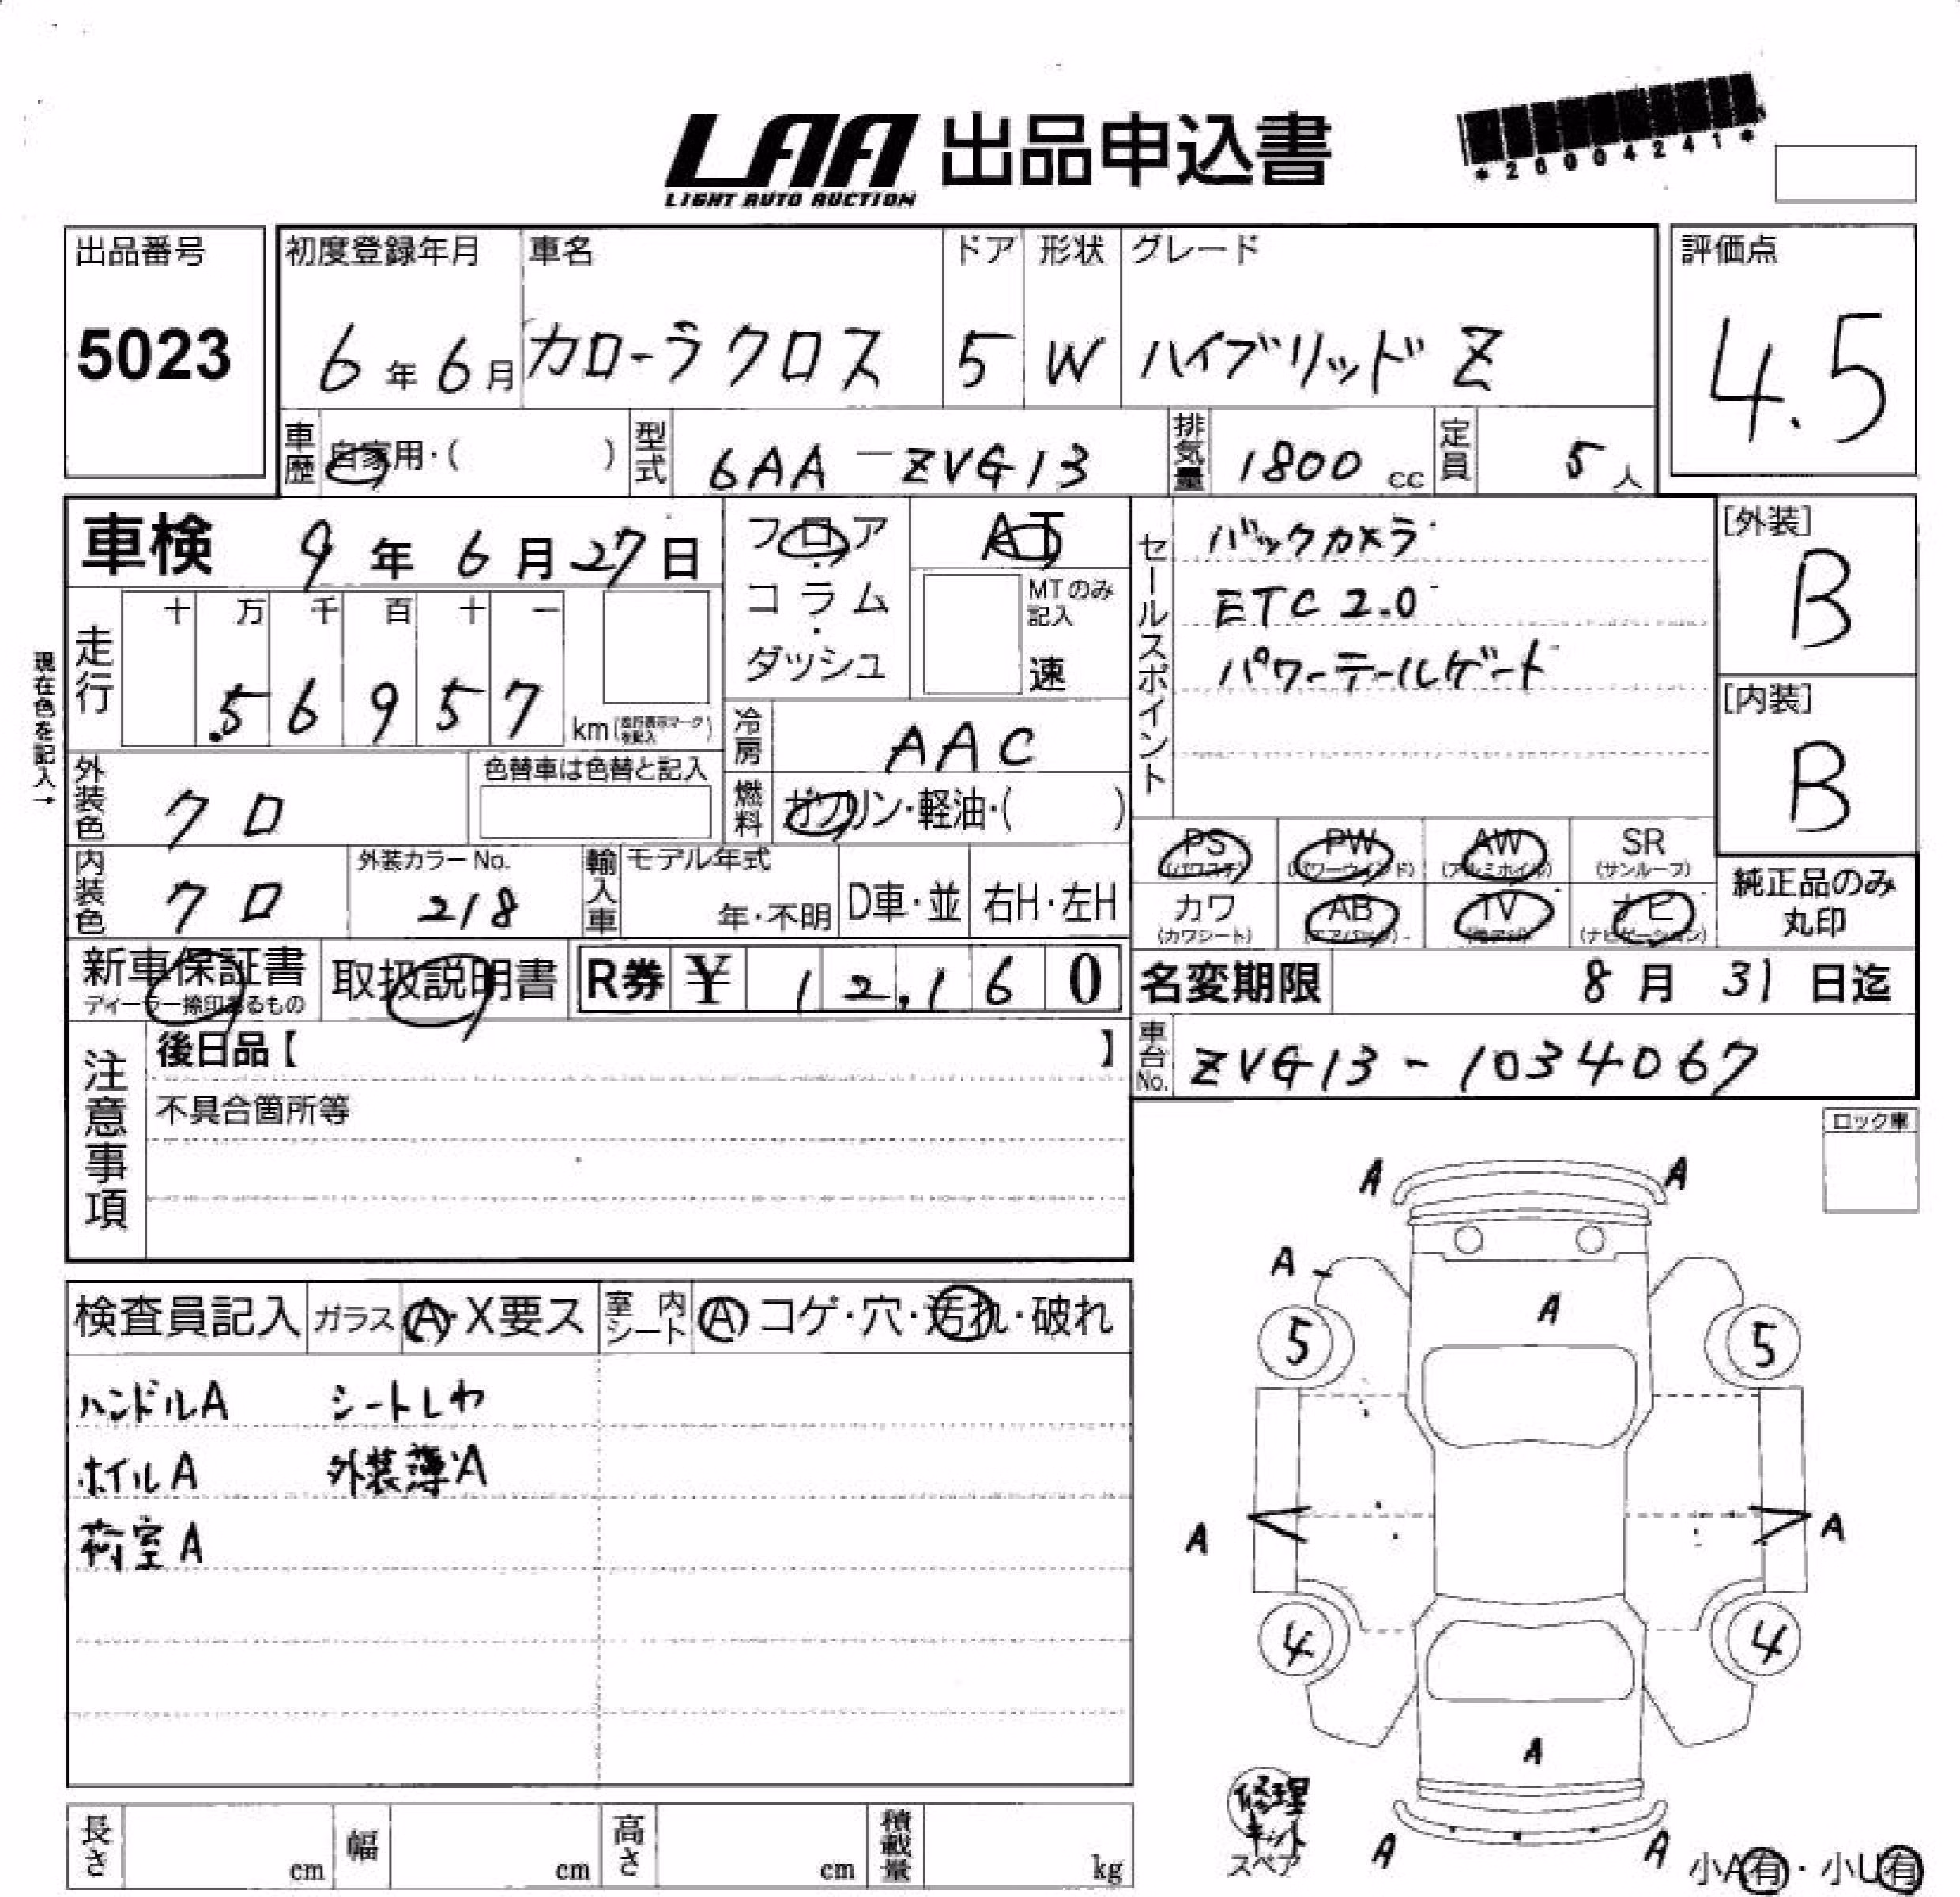 LAA 出品申込書
LIGHT AUTO AUCTION
*26004241*
出品番号 初度登録年月 車名 ドア 形状 グレード 評価点
5023 6年6月 カローラクロス 5 W ハイブリッド Z 4.5
車歴 自家用・( ) 型式 6AA-ZVG13 排気量 1800 cc 定員 5人
車検 9年6月27日
フロア・コラム・ダッシュ
AT
MTのみ記入
速
セールスポイント
バックカメラ
ETC 2.0
パワーテールゲート
[外装]
B
[内装]
B
現在色を記入→
走行 十 万 千 百 十 一
56957 km
冷房 AAC
外装色 クロ
色替車は色替と記入
燃料 ガソリン・軽油・( )
内装色 クロ
外装カラーNo.
218
輸入車 モデル年式
年・不明 D車・並 右H・左H
PS PW AW SR
(パワステ) (パワーウインド) (アルミホイル) (サンルーフ)
カワ AB TV ナビ
(カワシート) (エアバッグ) (ナビゲーション)
純正品のみ
丸印
新車保証書 取扱説明書 R券 ¥ 12,160
ディーラー捺印あるもの
名変期限 8月31日迄
車台No. ZVG13-1034067
注意事項
後日品【 】
不具合箇所等
ロック車
検査員記入 ガラス A・X要ス 室内シート A コゲ・穴・汚れ・破れ
ハンドルA シートしわ
ホイルA 外装薄A
荷室A
A A
A
A
5 5
A A
4 4
A
A A
修理
キット
スペア
小A有・小U有
長さ cm 幅 cm 高さ cm 積載量 kg